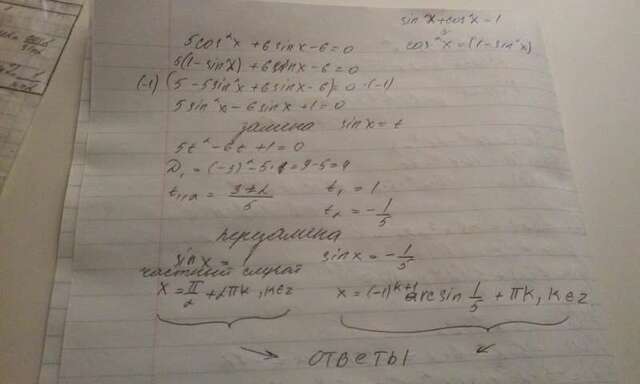 sin²x+cos²x=1
cos²x=(1-sin²x)
5cos²x+6sinx-6=0
5(1-sin²x)+6sinx-6=0
(-1) (5-5sin²x+6sinx-6)=0 ·(-1)
5sin²x-6sinx+1=0
замена sinx=t
5t²-6t+1=0
D₁=(-3)²-5·1=9-5=4
t₁,₂=3±2/5 t₁=1
t₂=-1/5
перезамена
sinx= sinx=-1/5
частный случай
x=π/2+2πk, k∈z x=(-1)ᵏ⁺¹arcsin 1/5+πk, k∈z
ответы